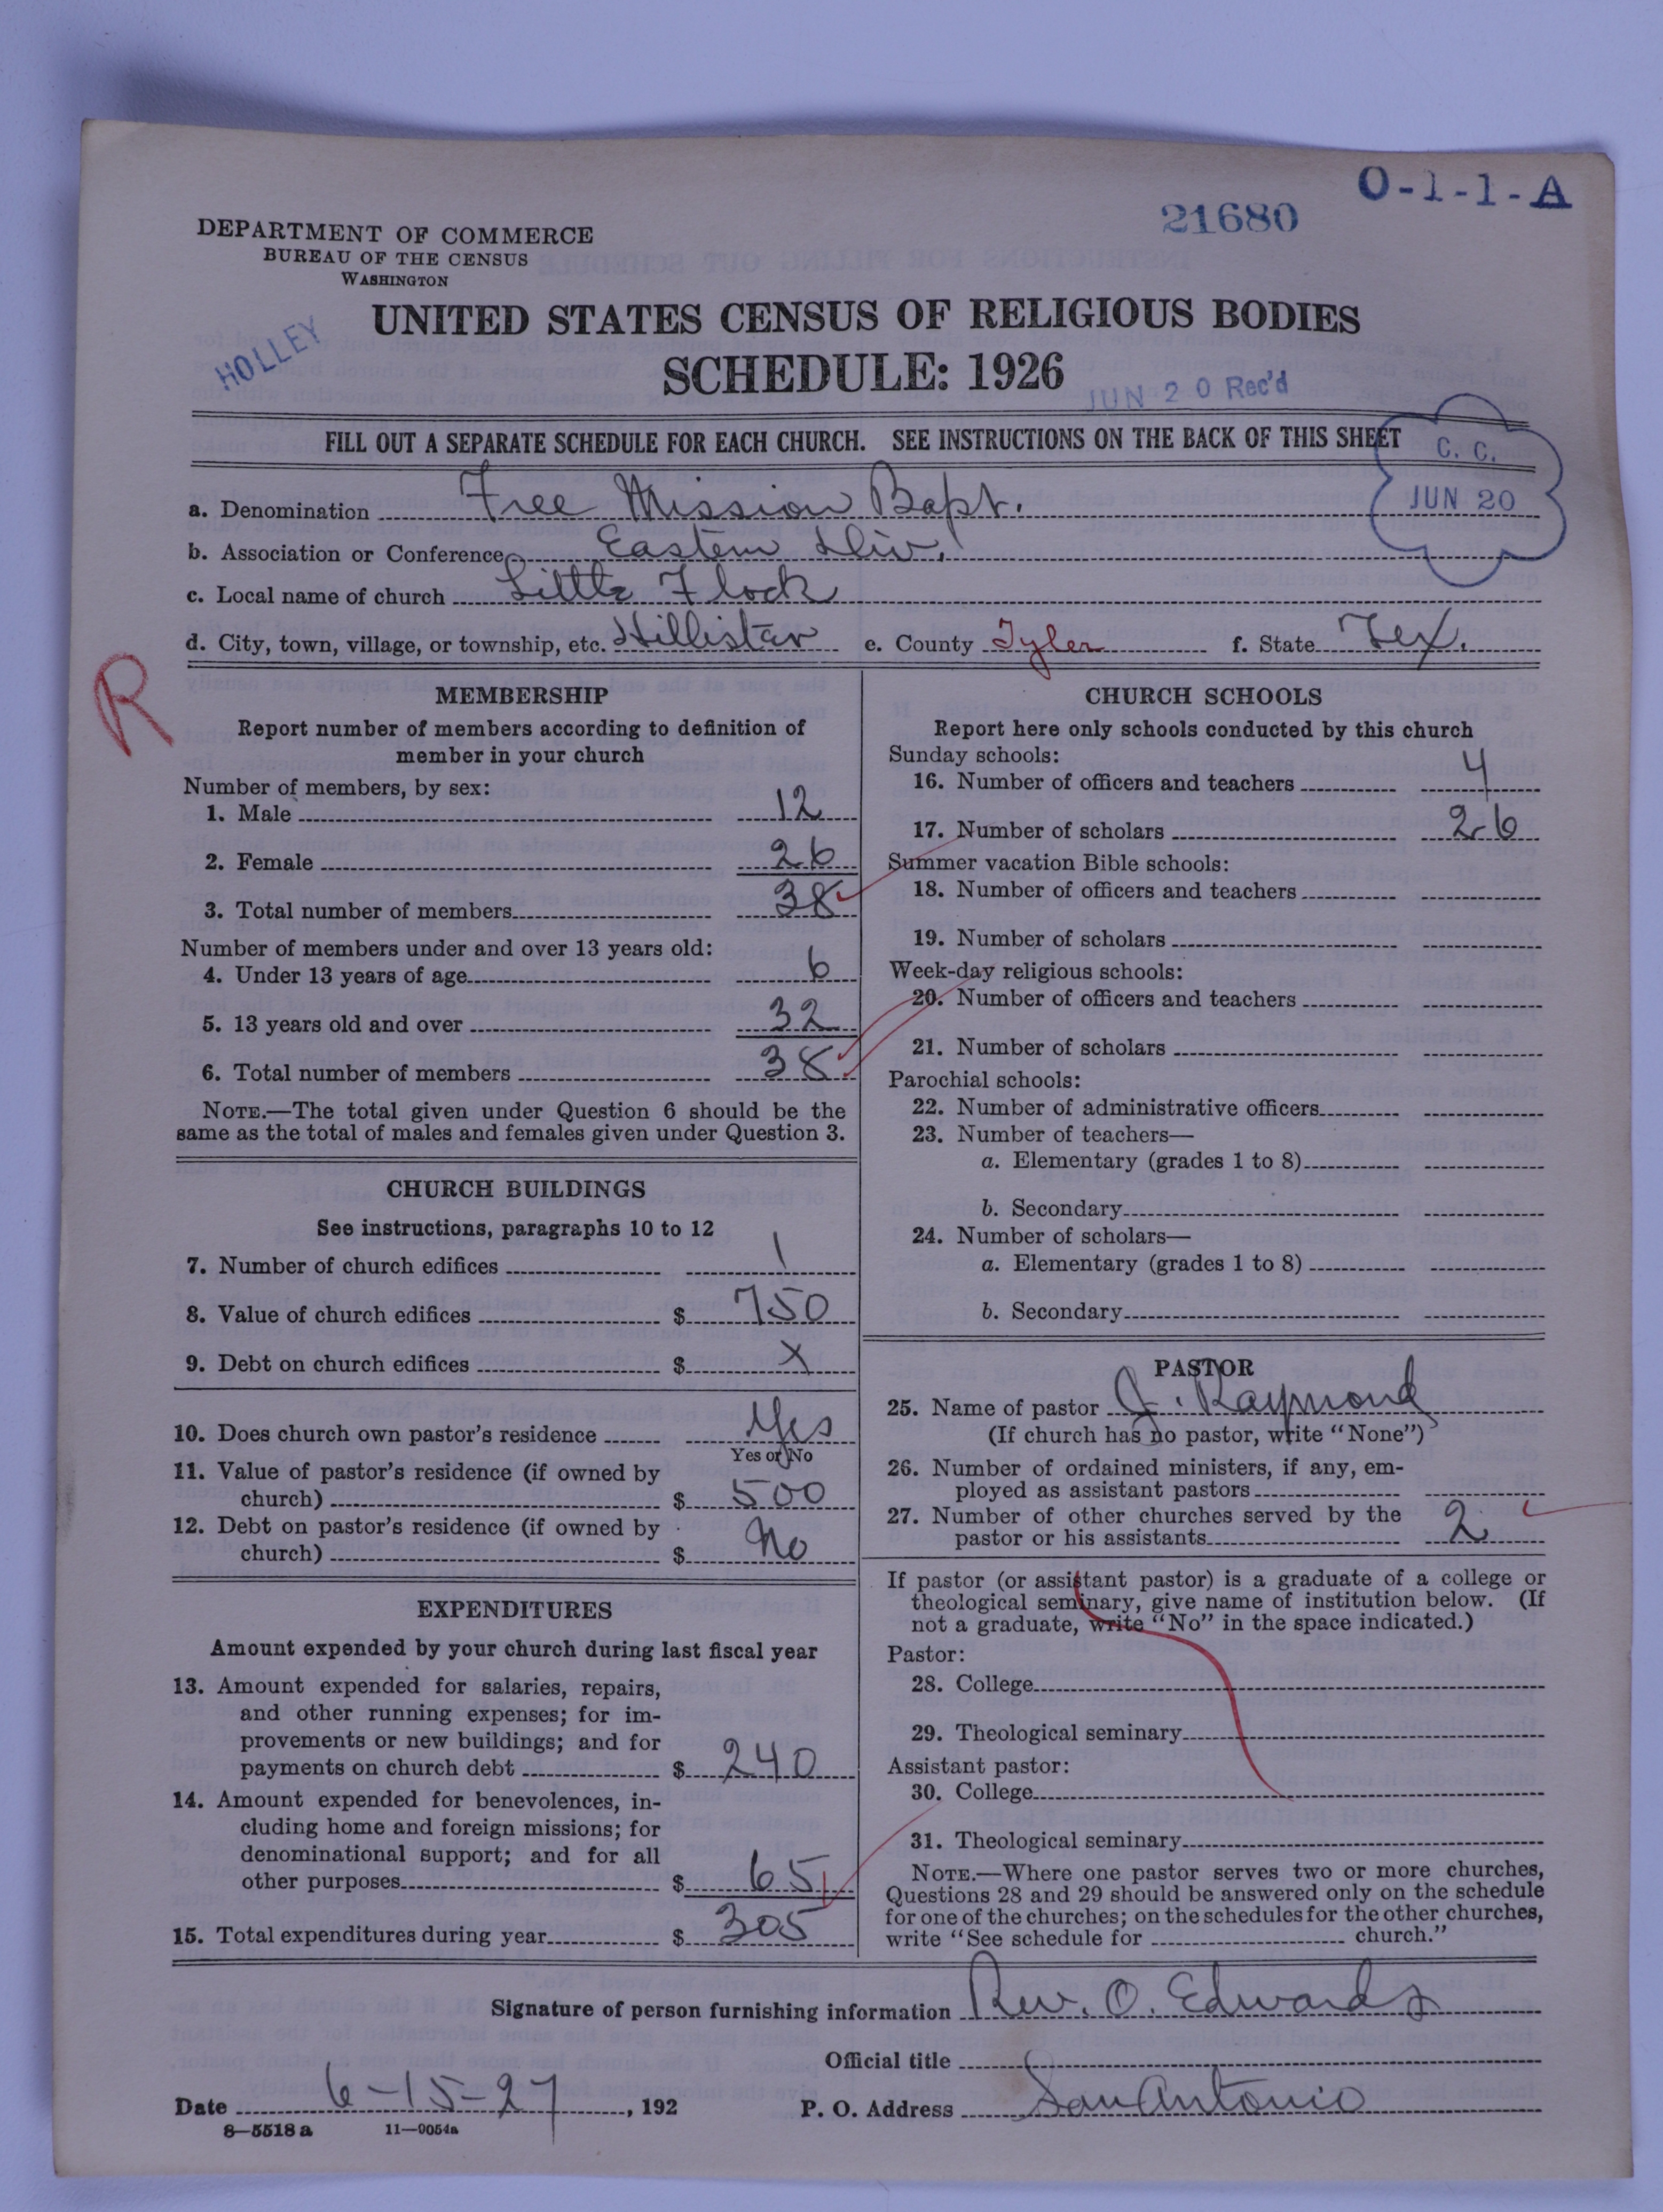 O-1-1-A
21680
DEPARTMENT OF COMMERCE
BUREAU OF THE CENSUS
WASHINGTON
HOLLEY
UNITED STATES CENSUS OF RELIGIOUS BODIES
SCHEDULE: 1926
JUN 20 Rec'd
FILL OUT A SEPARATE SCHEDULE FOR EACH CHURCH. SEE INSTRUCTIONS ON THE BACK OF THIS SHEET
C. C.
JUN 20
a. Denomination Free Mission Bapt.
b. Association or Conference Eastern Div.
c. Local name of church Little Flock
d. City, town, village, or township, etc. Hillistar e. County Tyler f. State Tex.
R
MEMBERSHIP
Report number of members according to definition of
member in your church
Number of members, by sex:
1. Male 12
2. Female 26
3. Total number of members 38
Number of members under and over 13 years old:
4. Under 13 years of age 6
5. 13 years old and over 32
6. Total number of members 38
NOTE.—The total given under Question 6 should be the
same as the total of males and females given under Question 3.
CHURCH BUILDINGS
See instructions, paragraphs 10 to 12
7. Number of church edifices 1
8. Value of church edifices $ 750
9. Debt on church edifices $ X
10. Does church own pastor's residence Yes
Yes or No
11. Value of pastor's residence (if owned by
church) $ 500
12. Debt on pastor's residence (if owned by
church) $ No
EXPENDITURES
Amount expended by your church during last fiscal year
13. Amount expended for salaries, repairs,
and other running expenses; for im-
provements or new buildings; and for
payments on church debt $ 240
14. Amount expended for benevolences, in-
cluding home and foreign missions; for
denominational support; and for all
other purposes $ 65
15. Total expenditures during year $ 305
CHURCH SCHOOLS
Report here only schools conducted by this church
Sunday schools:
16. Number of officers and teachers 4
17. Number of scholars 26
Summer vacation Bible schools:
18. Number of officers and teachers
19. Number of scholars
Week-day religious schools:
20. Number of officers and teachers
21. Number of scholars
Parochial schools:
22. Number of administrative officers
23. Number of teachers—
a. Elementary (grades 1 to 8)
b. Secondary
24. Number of scholars—
a. Elementary (grades 1 to 8)
b. Secondary
PASTOR
25. Name of pastor J. Raymond
(If church has no pastor, write "None")
26. Number of ordained ministers, if any, em-
ployed as assistant pastors
27. Number of other churches served by the
pastor or his assistants 2
If pastor (or assistant pastor) is a graduate of a college or
theological seminary, give name of institution below. (If
not a graduate, write "No" in the space indicated.)
Pastor:
28. College
29. Theological seminary
Assistant pastor:
30. College
31. Theological seminary
NOTE.—Where one pastor serves two or more churches,
Questions 28 and 29 should be answered only on the schedule
for one of the churches; on the schedules for the other churches,
write "See schedule for church."
Signature of person furnishing information Rev. O. Edwards
Official title
Date 6-15-27, 192 P. O. Address San Antonio
8—5518 a 11—9054a